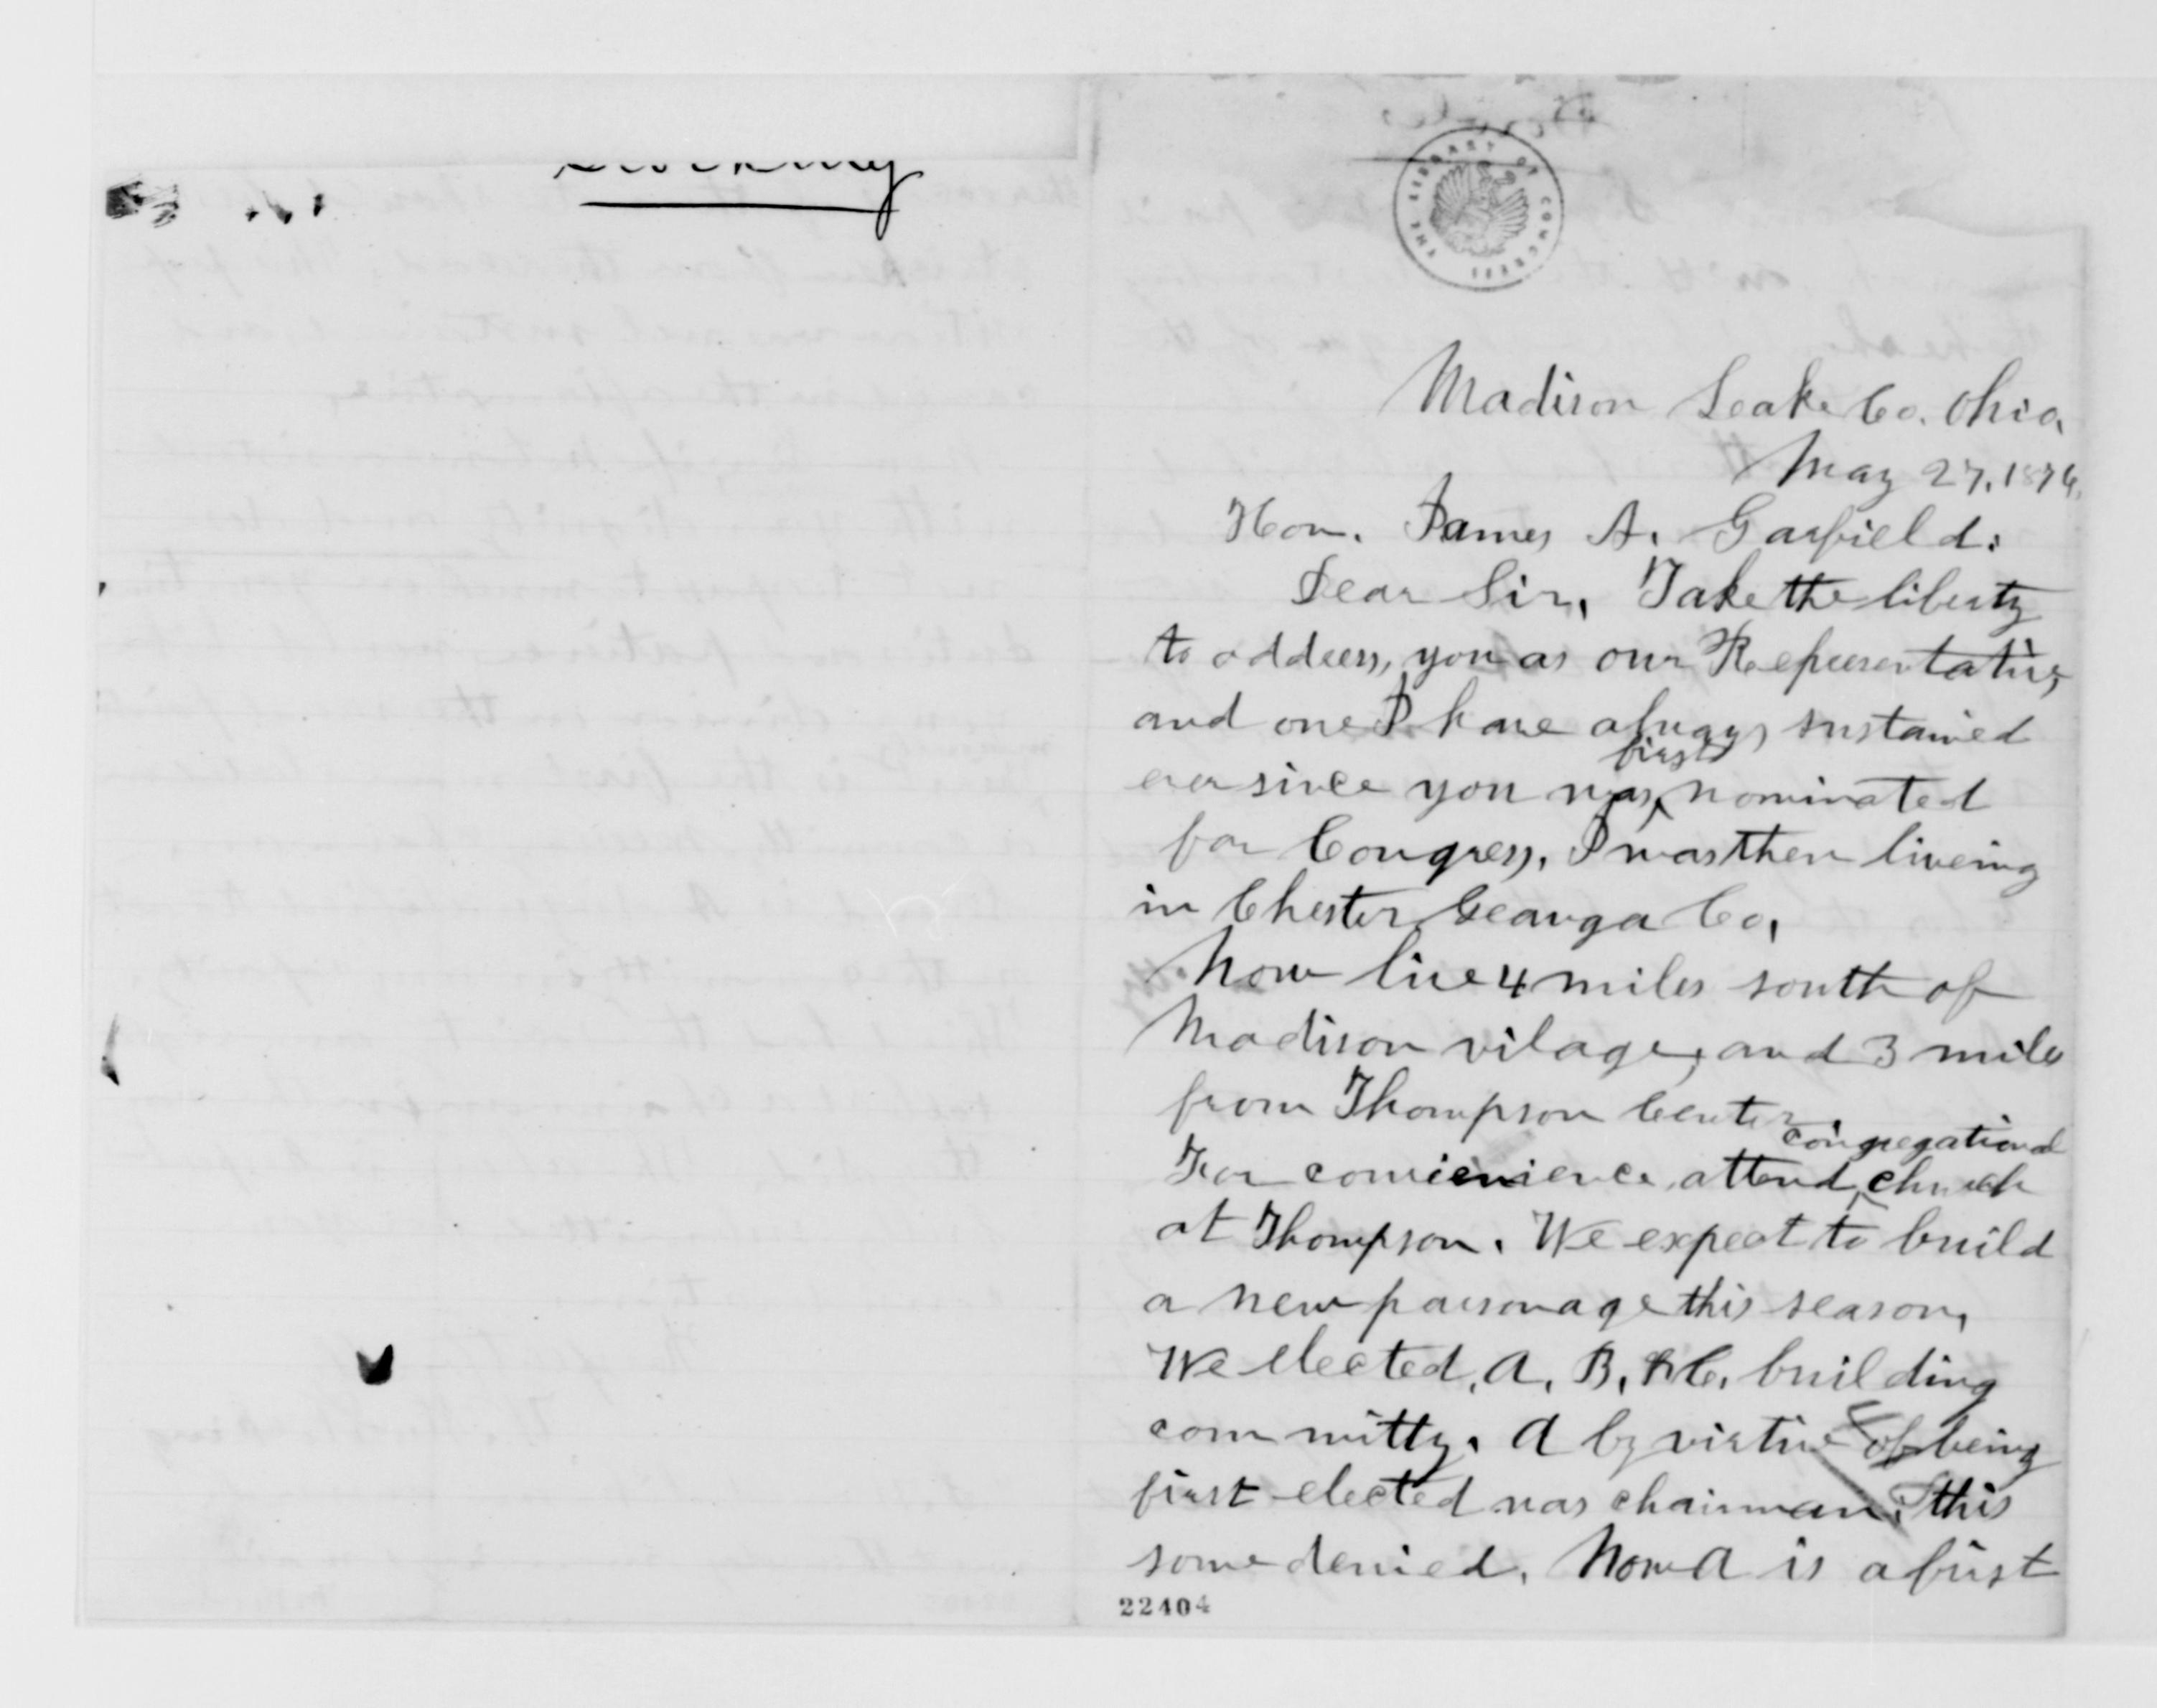 Madison Leake Co. Ohio,
May 27, 1876,
Hon. James A. Garfield:
Dear Sir, Take the liberty
to address, you as our Representative,
and one I have always sustained
ever since you was first nominated
for Congress, I was then liveing
in Chester Geauga Co,
Now live 4 miles south of
Madison vilage, and 3 miles
from Thompson Center.
For convienience, attend congregational church
at Thompson. We expect to build
a new parsonage this season,
We elected, A, B, & C, building
committy. A by virtue of being
first elected was chairman, this
some denied. Now A is a first
22404
THE LIBRARY OF CONGRESS